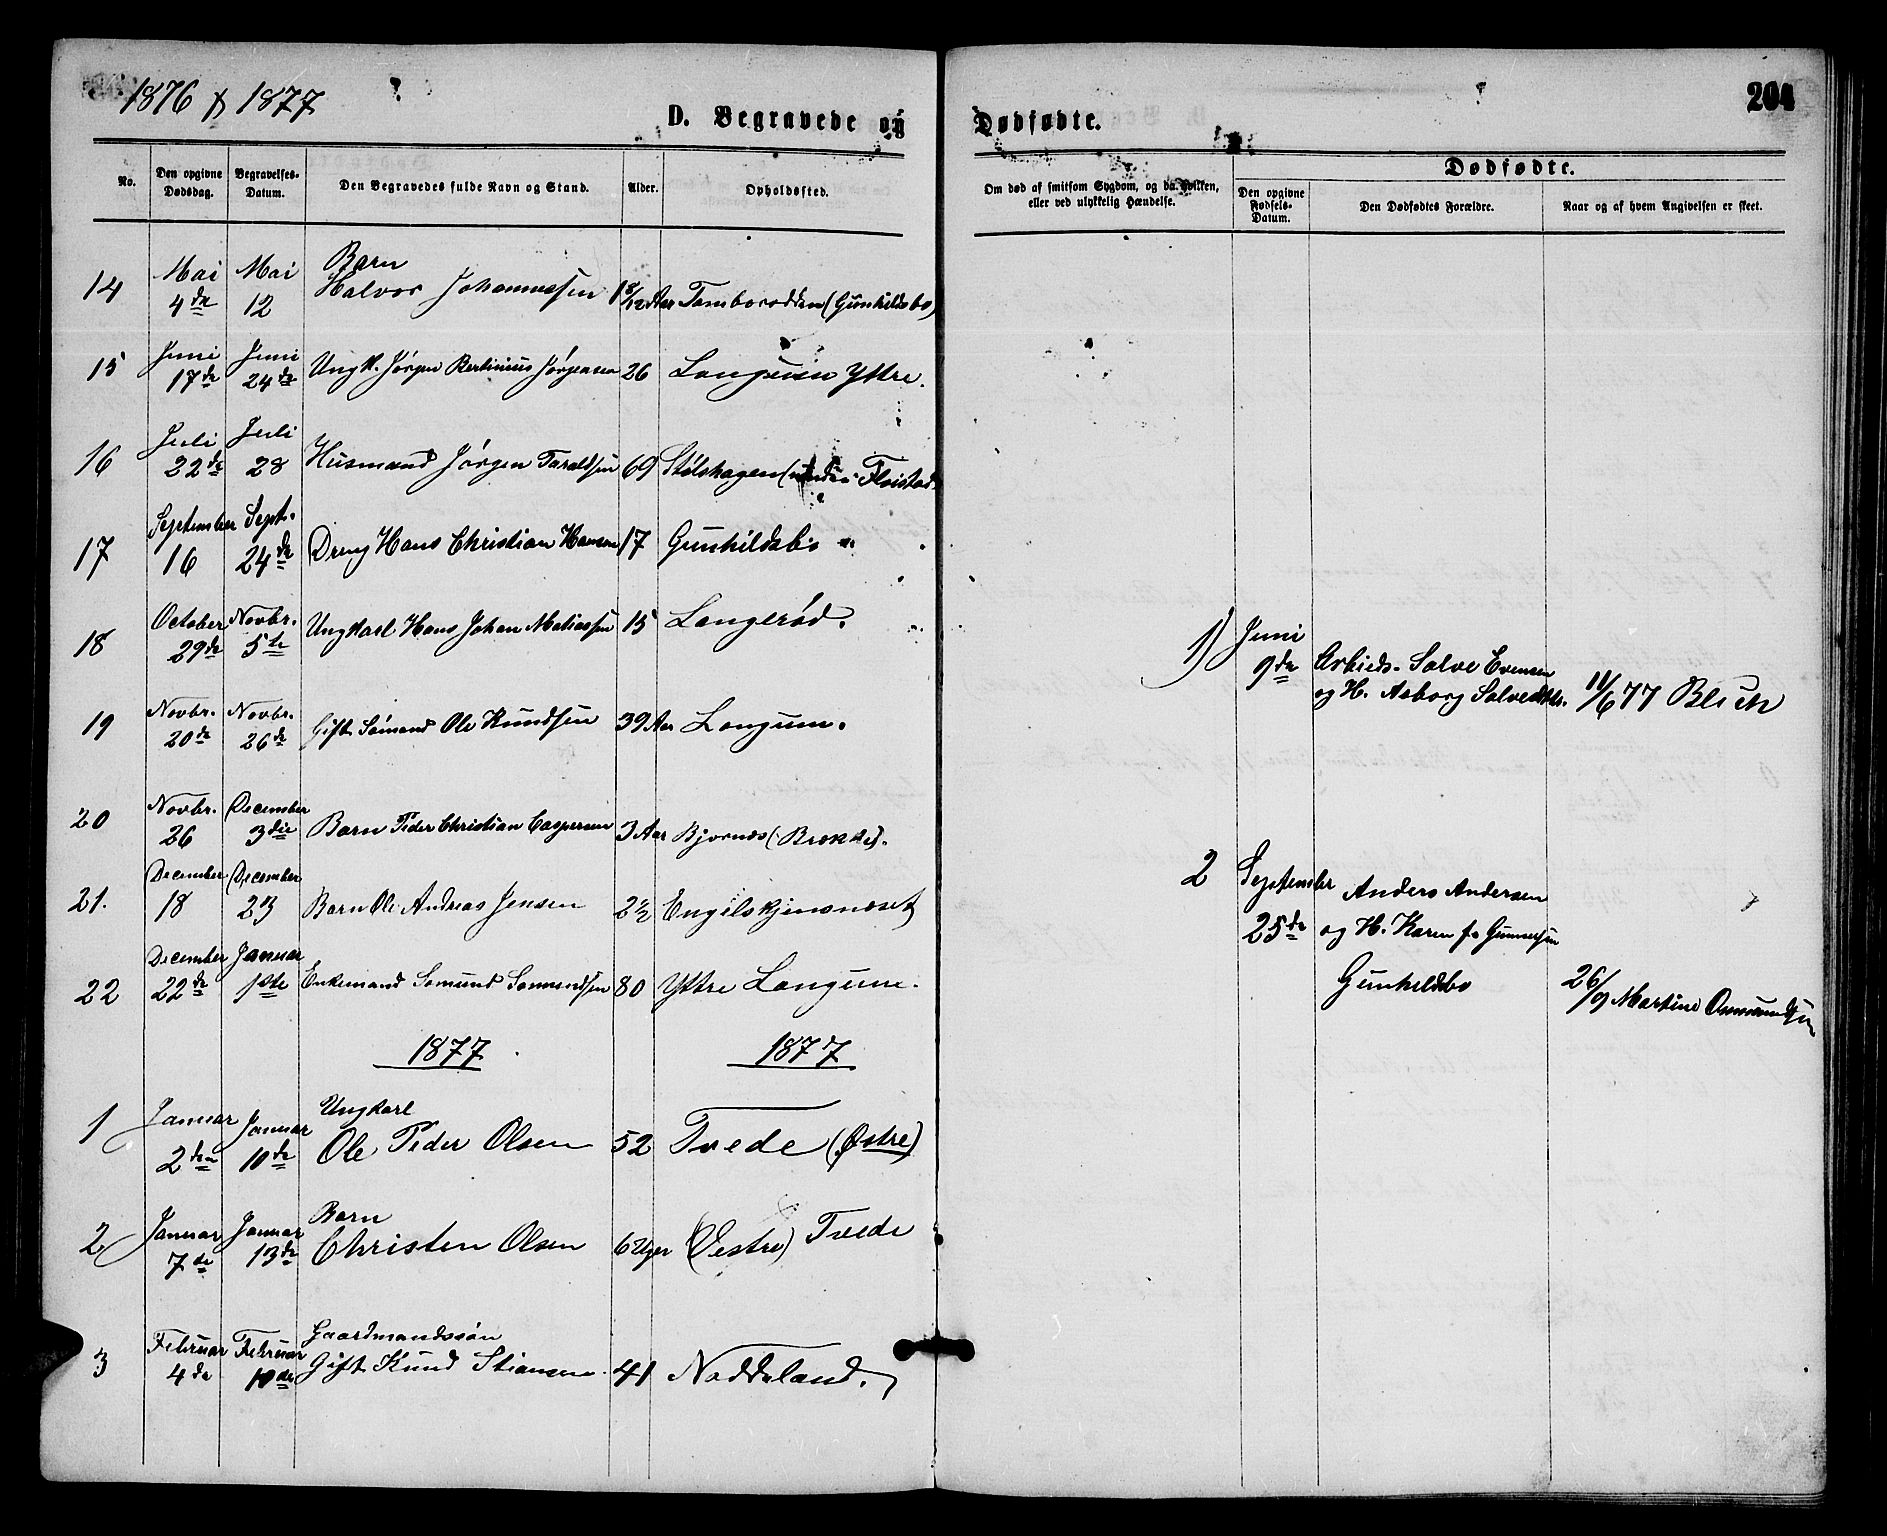 1876 & 1877
D. Begravede og Dødfødte.
204
No. Den opgivne Dødsdag. Begravelses-Datum. Den Begravedes fulde Navn og Stand. Alder. Opholdssted.
Om død af smitsom Sygdom, og da hvilken, eller ved ulykkelig Hændelse.
Dødfødte.
Den opgivne Fødsels-Datum. Den Dødfødtes Forældre. Naar og af hvem Angivelsen er skeet.
Mai Mai Barn
14 4de 12 Halvor Johannessen 1 8/12 Aar Tamborodden (Gunhildsbo)
Juni Juni
15 17de 24de Ungk. Jørgen Bertinius Jørgensen 26 Langum Yttre.
Juli Juli
16 22de 28 Husmand Jørgen Taraldsen 69 Stølshagen (under Fløistad
September Sept.
17 16 24de Dreng Hans Christian Hansen 17 Gunhildsbo
October Novbr.
18 29de 5te Ungkarl Hans Johan Matiassen 15 Langerød.
Novbr. Novbr.
19 20de 26de Gift Sømand Ole Knudsen 39 Aar Langum.
Novbr. December
20 26 3die Barn Peder Christian Caspersen 3 Aar Bjornes (Brekke).
December December
21. 18 23 Barn Ole Andreas Jensen 2½ Engelskjensneset
December Januar
22 22de 1ste Enkemand Somund Somundsen 80 Yttre Langum.
1877 1877
Januar Januar Ungkarl
1 2den 10de Ole Peder Olsen 52 Tvede (Østre)
Januar Januar Barn
2 7de 13de Christen Olsen 6 Uger (Vestre) Tvede
Februar Februar Gaardmandssøn
3 4de 10de Gift Knud Stiansen 41 Noddeland.
1) Juni
9de Arbieds. Salve Evensen
og H. Asborg Salvedtr. 11/6 77 Blich
2 September Anders Andersen
25de og H. Karen f. Gunnersen
Gunhildsbo 26/9 Martine